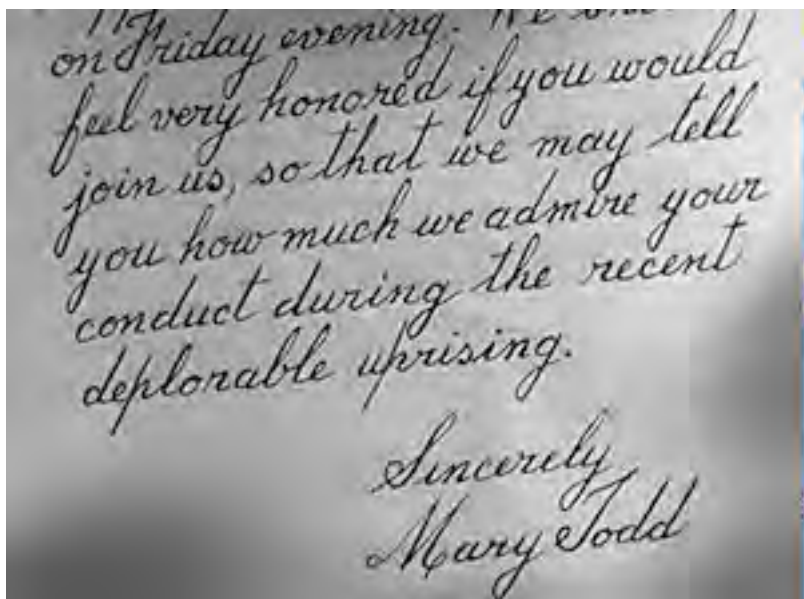 on Friday evening. We
feel very honored if you would
join us, so that we may tell
you how much we admire your
conduct during the recent
deplorable uprising.
Sincerely
Mary Todd